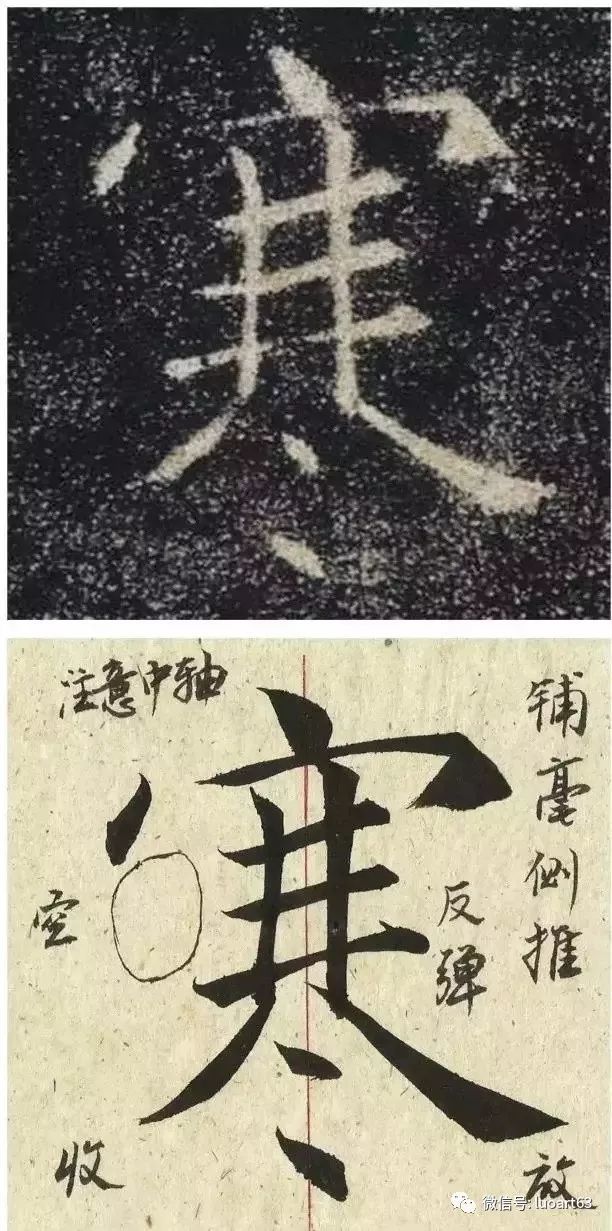 寒
注意中轴
寒
铺毫侧推
反弹
空
收
放
微信号: luoart63